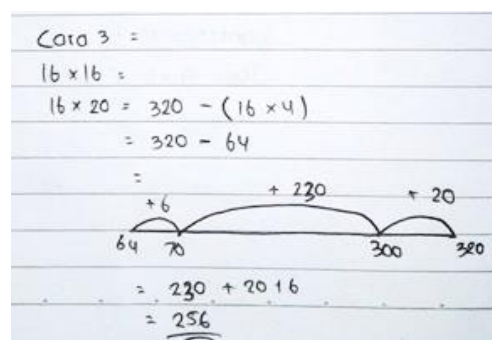 Cara 3 =
16 × 16 =
16 × 20 = 320 - (16 × 4)
= 320 - 64
=
+6 + 230 + 20
64 70 300 320
= 230 + 20 + 6
= 256